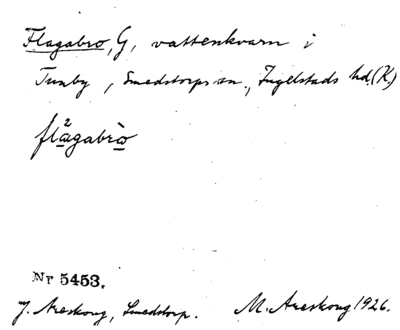 Flagabro, G, vattenkvarn i
Tunby, Smedstorps sn., Ingelstads hd. (K)
flägabrò
Nr 5453.
J. Areskoug, Smedstorp. M. Areskoug 1926.